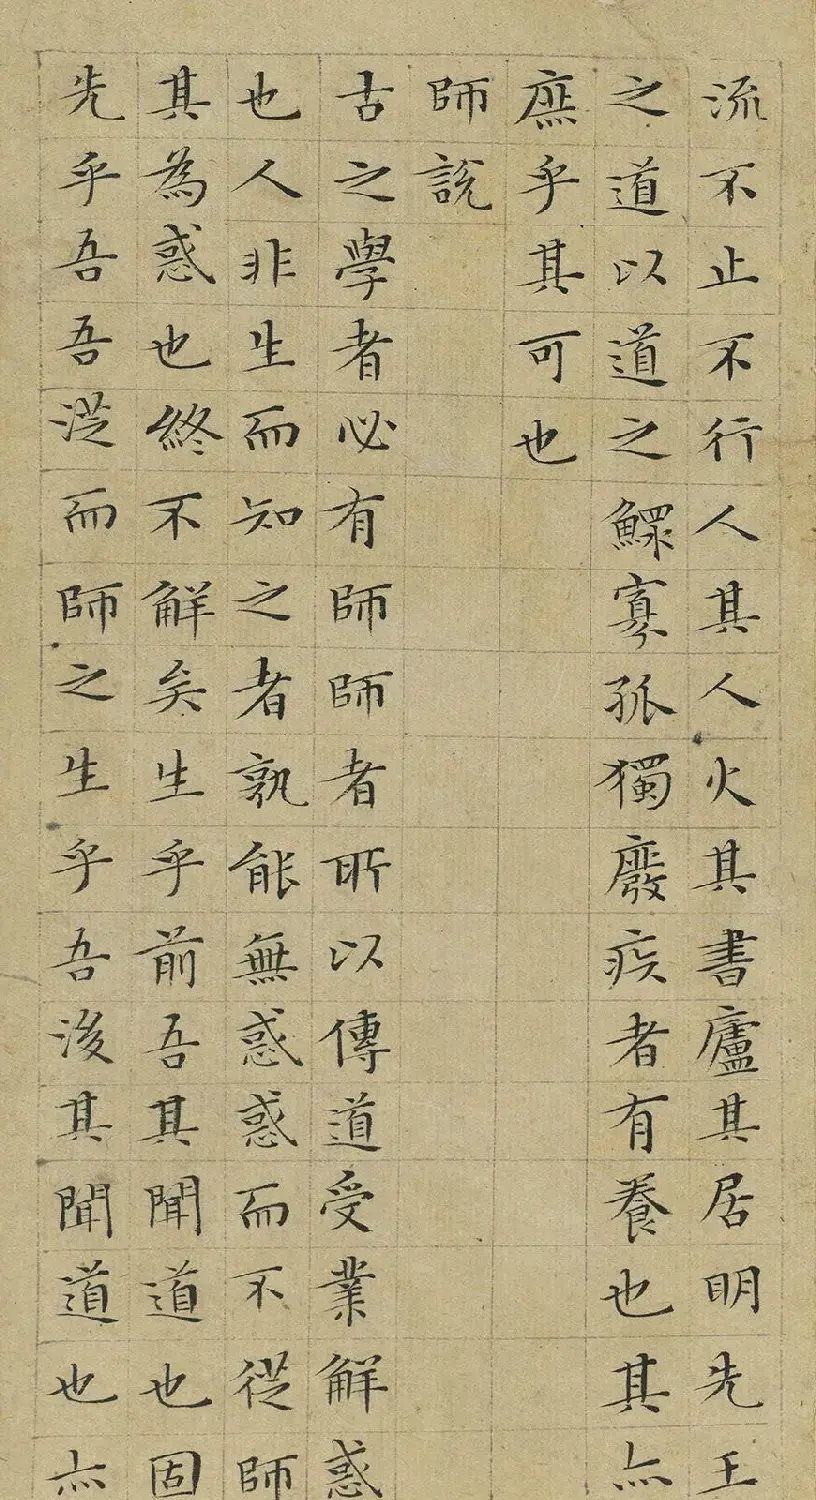 流不止不行人其人火其書廬其居明先王
之道以道之鰥寡孤獨廢疾者有養也其亦
庶乎其可也
師說
古之學者必有師師者所以傳道受業解惑
也人非生而知之者孰能無惑惑而不從師
其為惑也終不解矣生乎前吾其聞道也固
先乎吾吾從而師之生乎吾後其聞道也亦